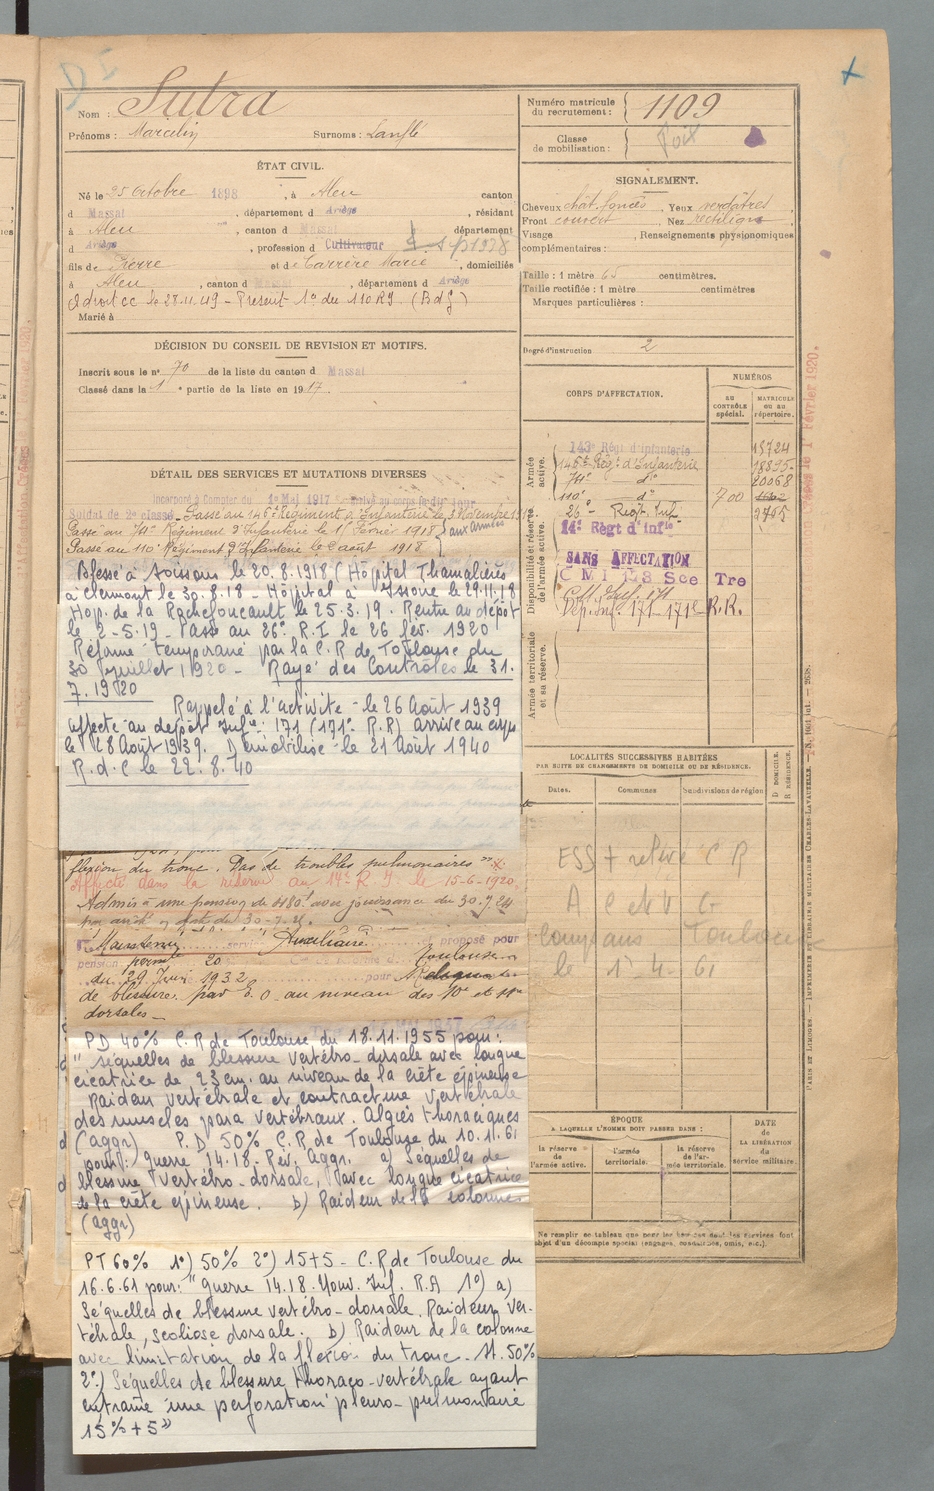 D I
Nom : Sutra
Prénoms : Marcelin Surnoms :
ÉTAT CIVIL.
Né le 25 Octobre 1898, à Aleu canton
d Massat, département d Ariège, résidant
à Aleu, canton d Massat département
d Ariège, profession d Cultivateur
fils de Pierre et de Carrère Marie, domiciliés
à Aleu, canton d Massat, département d Ariège
le 28.11.49 - Présent 1° du 110 RI
Marié à
DÉCISION DU CONSEIL DE REVISION ET MOTIFS.
Inscrit sous le n° 70 de la liste du canton d Massat
Classé dans la 1e partie de la liste en 1917.
DÉTAIL DES SERVICES ET MUTATIONS DIVERSES
Incorporé à Compter du 1er Mai 1917
Soldat de 2e classe. Passé au 146e Régiment d'Infanterie le 3 Novembre
Passé au 74e Régiment d'Infanterie le 11 Février 1918 } aux Armées
Passé au 110e Régiment d'Infanterie le 2 août 1918
Blessé à Soissons le 20.8.1918 (Hôpital
à Clermont le 30.8.18 - Hôpital à Issoire le 29.11.18
Hop. de la Rochefoucault le 25.3.19. Rentré au dépôt
le 2-5.19 - Passé au 26e R.I le 26 fév. 1920
Réformé temporaire par la C.R de Toulouse du
30 juillet 1920 - Rayé des Contrôles le 31.
7.1920
Rappelé à l'activité - le 26 Août 1939
affecté au dépôt Infie 171 (171e R.R) arrivé au corps
le 28 Août 1939. Démobilisé le 21 Août 1940
R.d.C le 22.8.40
flexion du tronc. Pas de troubles pulmonaires".
Affecté dans la réserve au 14e R.I. le 15-6-1920.
Admis à une pension de 480f avec jouissance du 30.7.24
Maintenu service Auxiliaire proposé pour
pension permte 20 Toulouse
du 29 Juin 1932 pour
de blessure par E.O au niveau des 10e et 11e
dorsales.
PD 40% C.R de Toulouse du 18.11.1955 pour :
" Séquelles de blessure vertébro-dorsale avec longue
cicatrice de 23 cm. au niveau de la crête épineuse
raideur vertébrale et contracture vertébrale
des muscles para vertébraux. Algies thoraciques
(aggr) P.D 50% C.R de Toulouse du 10.11.61
pour : guerre 14.18. Rev. Aggr. a) Séquelles de
blessure vertébro-dorsale, avec longue cicatrice
de la crête épineuse. b) Raideur de la colonne
(aggr)
PT 60% 1°) 50% 2°) 15+5 - C.R de Toulouse du
16.6.61 pour : " guerre 14.18. Nouv. Inf. R.A 1°) a)
Séquelles de blessure vertébro-dorsale. Raideur ver-
tébrale, scoliose dorsale. b) Raideur de la colonne
avec limitation de la flexion du tronc. M. 50%
2°) Séquelles de blessure thoraco-vertébrale ayant
entraîné une perforation pleuro-pulmonaire
15% + 5"
Numéro matricule du recrutement : 1109
Classe de mobilisation :
SIGNALEMENT.
Cheveux chât. foncés, Yeux verdâtres,
Front couvert, Nez rectiligne
Visage, Renseignements physionomiques
complémentaires :
Taille : 1 mètre 65 centimètres.
Taille rectifiée : 1 mètre centimètres
Marques particulières :
Degré d'instruction 2
CORPS D'AFFECTATION.
NUMÉROS
AU CONTRÔLE spécial.
MATRICULE ou au répertoire.
Armée active.
143e Régt d'infanterie 15724
146e Régt d'Infanterie 18895
74e d° 20068
110e d° 700
Disponibilité et réserve de l'armée active.
26e - Régt Inf. 2765
14e Régt d'infie
SANS AFFECTATION
C M I Sce Tre
C.M. Inf. 171
Dép. Inf. 171 - 171e R.R.
Armée territoriale et sa réserve.
LOCALITÉS SUCCESSIVES HABITÉES
PAR SUITE DE CHANGEMENTS DE DOMICILE OU DE RÉSIDENCE.
Dates. Communes Subdivisions de région D DOMICILE. R RÉSIDENCE.
ESS + relevé C R
A C et V G
Toulouse
le 1-4-61
ÉPOQUE
A LAQUELLE L'HOMME DOIT PASSER DANS :
la réserve de l'armée active.
l'armée territoriale.
la réserve de l'armée territoriale.
DATE de LA LIBÉRATION du service militaire.
Février 1920.
PARIS ET LIMOGES. — IMPRIMERIE ET LIBRAIRIE MILITAIRES CHARLES-LAVAUZELLE.